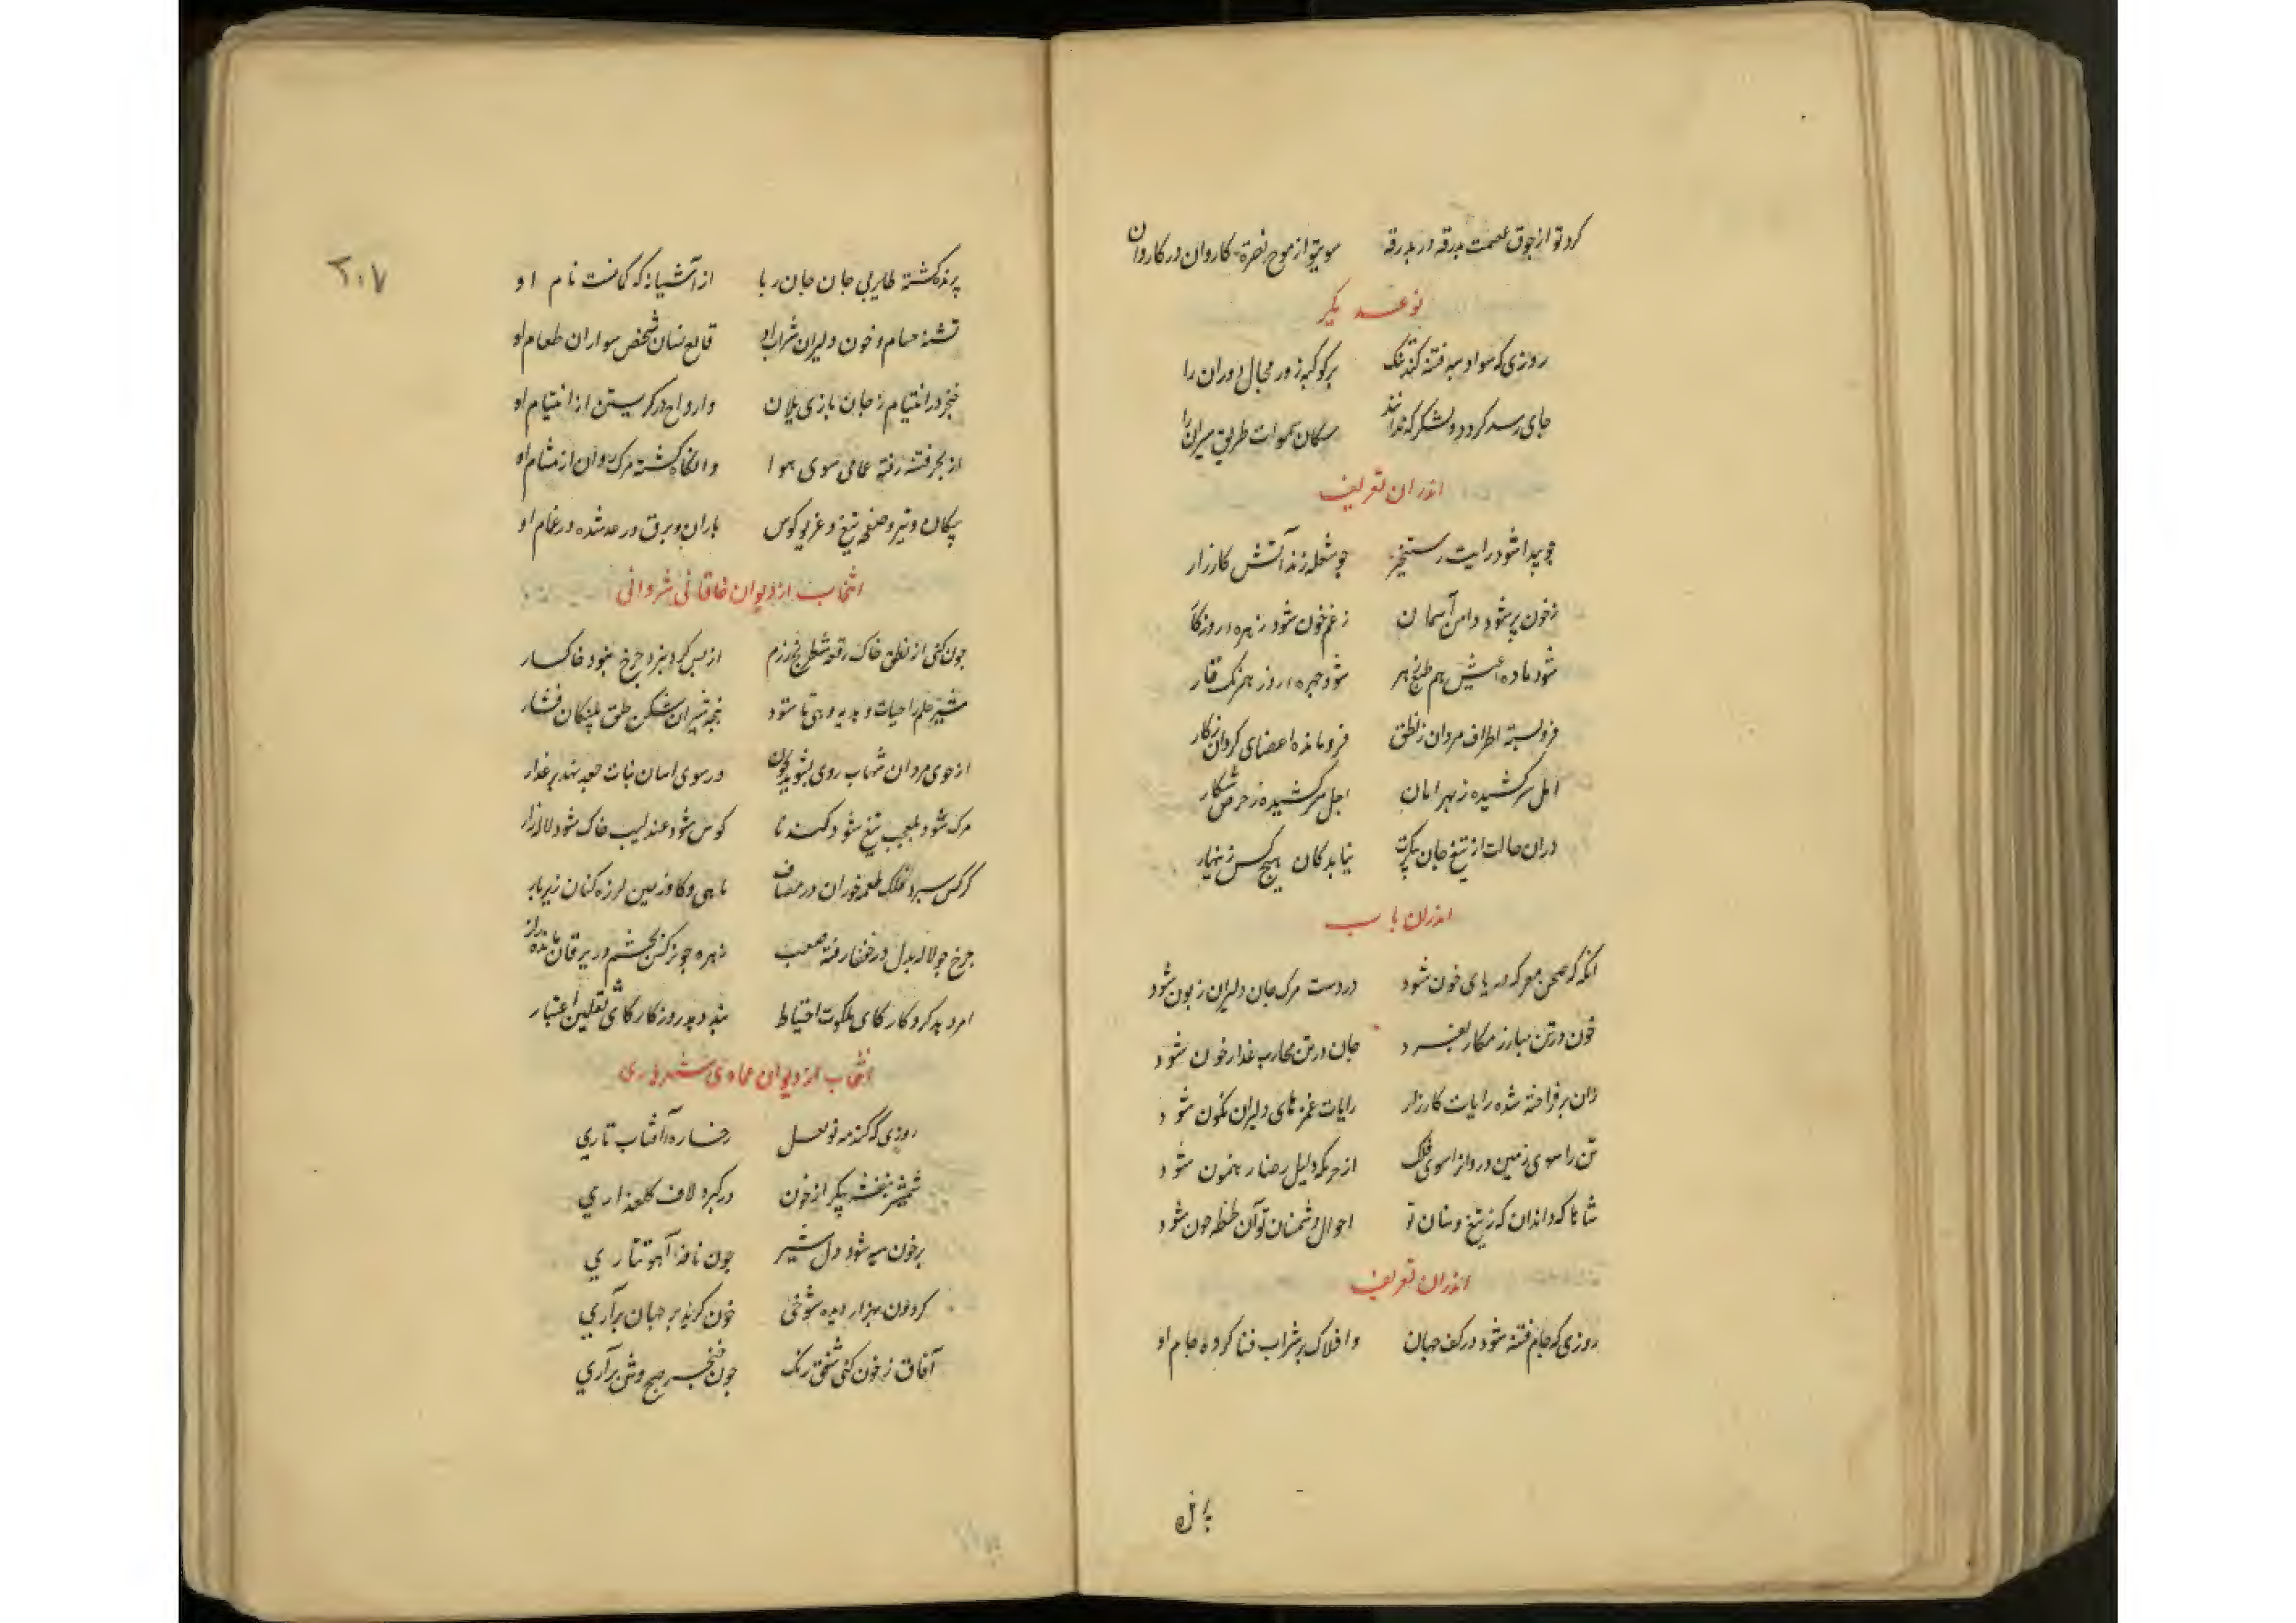 کرد تو از جوق عصمت بدرقه در بدرقه سوی تو از موج نصرة کاروان در کاروان
نوعد یکر
روزی که سواد سپه فتنه کند تنک بر کوکبه زور مجال دوران را
جای رسد کرد دو لشکر که ندانند سکان سموات طریق سیران را
اندران تعریف
چو پیدا شود رایت رستخیز چو شعله زند آتش کارزار
زخون پر شود دامن آسمان زغم خون شود زهره روزکار
شود ماده عیش هم طبع زهر شود چهره روز همرنک قار
فرو بسته اطراف مردان زنطق فرو مانده اعضای کردان زکار
امل سر کشیده زبهر امان اجل سر کشیده زحرص شکار
دران حالت از تیغ جان نیابد کان هیچ کس زینهار
اندران باب
انکه که صحن معرکه دریای خون شود در دست مرک جان دلیران زبون شود
خون در تن مبارز مکار بفسرد جان در تن محارب غدار خون شود
زان بر فراخته شده رایات کارزار رایات عمرهای دلیران نکون شود
تن را سوی زمین و روان را سوی فلک از حربکه دلیل رضا رهنمون شود
شاها که داند ان که زتیغ و سنان تو احوال دشمنان تو آن لحظه چون شود
اندران تعریف
روزی که جام فتنه شود در کف جهان وافلاک پر شراب فنا کرده جام او
پرنده
٢٠٧
پرنده کشته طایر بی جان جان ربا از آشیانه که کمانست نام او
تشنه حسام و خون دلیران شراب او قانع سنان و شخص سواران طعام او
خنجر در ابتسام زجان بازی یلان وارواح در کریستن از ابتسام او
از بحر فتنه رفته غمامی سوی هوا وانکاه کشته مرک روان از مشام او
پیکان و تیر و صفحه تیغ و غریو کوس باران و برق و رعد شده در غمام او
انتخاب از دیوان خاقانی شروانی
چون کنی از نطق خاک رقعه شطرنج رزم از پس کرد نبرد چرخ شود خاکسار
شیر علم را حیات دهد تا شود پنجه شیران شکن حلق پلنکان فشار
از خوی مردان شهاب روی بشوید بخون در سوی اسمان بنات جعد نهد بر عذار
مرک شود بوالعجب تیغ شود کندنا کوس شود عندلیب خاک شود لاله زار
کرکس سبز فلک طعمه خوران در مصاف ماهی و کاو زمین لرزه کنان زیر بار
چرخ چو لاله بدل در خفقان رفته صعب زهره چو نرکس بچشم در یرقان مانده زار
امر دهد کردکار کای ملکوت احتیاط پند دهد روزکار کای ثقلین اعتبار
انتخاب از دیوان عمادی شهریاری
روزی که کند مه نو نعل رخساره آفتاب تاری
شمشیر بنفشه پیکر از خون در کیرد لاف کلعذاری
پر خون سیه شود دل شیر چون نافه آهو تتاری
کردون بهزار دیده شوخی خون کرید بر جهان بزاری
آفاق زخون کنی شفق رنک چون خنجر صبح وش برآری